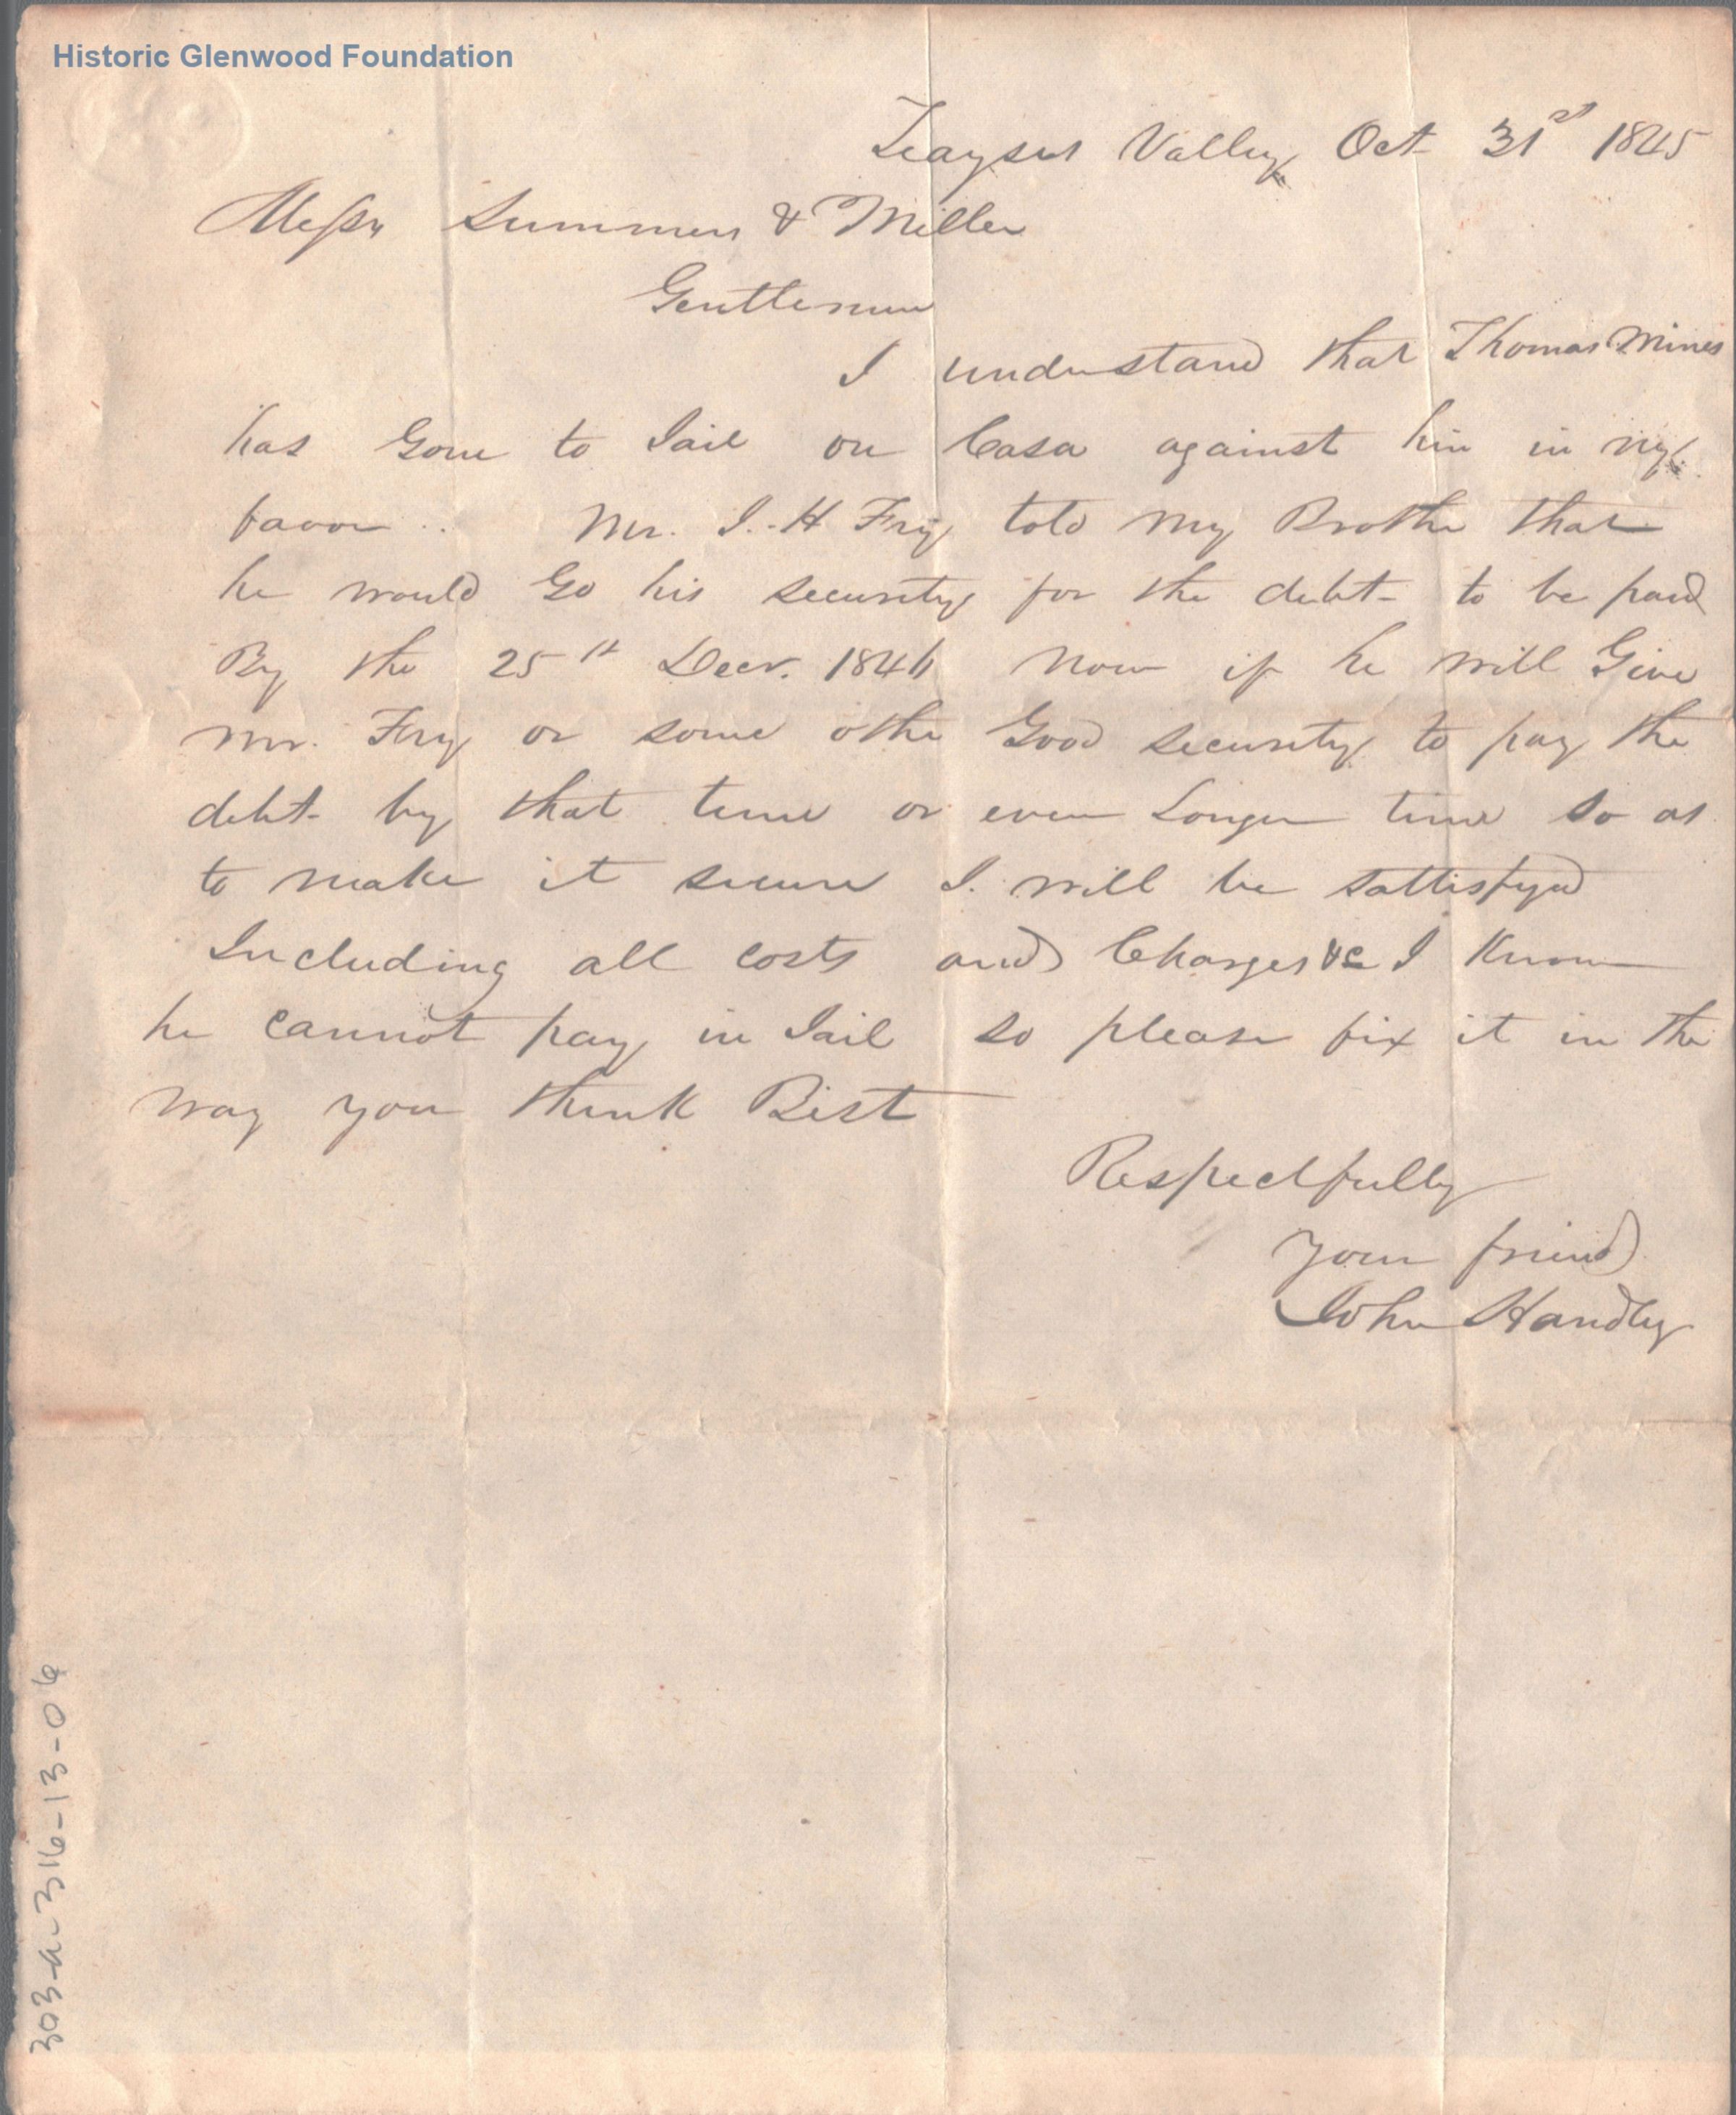 Historic Glenwood Foundation
Teayses Valley Oct 31st 1845
Messrs Summers & Miller
Gentlemen
I understand that Thomas Mines
has Gone to Jail on Casa against him in my
favor .. Mr. J. H Fry told my Brother that
he would Go his security for the debt to be paid
By the 25th Decr. 1846 Now if he will Give
Mr. Fry or some other Good security to pay the
debt by that time or even Longer time so as
to make it secure I. will be sattisfyed
Including all costs and Charges &c I Know
he cannot pay in Jail so please fix it in the
way you think Best
Respectfully
Your friend
John Handley
303-a-316-13-06